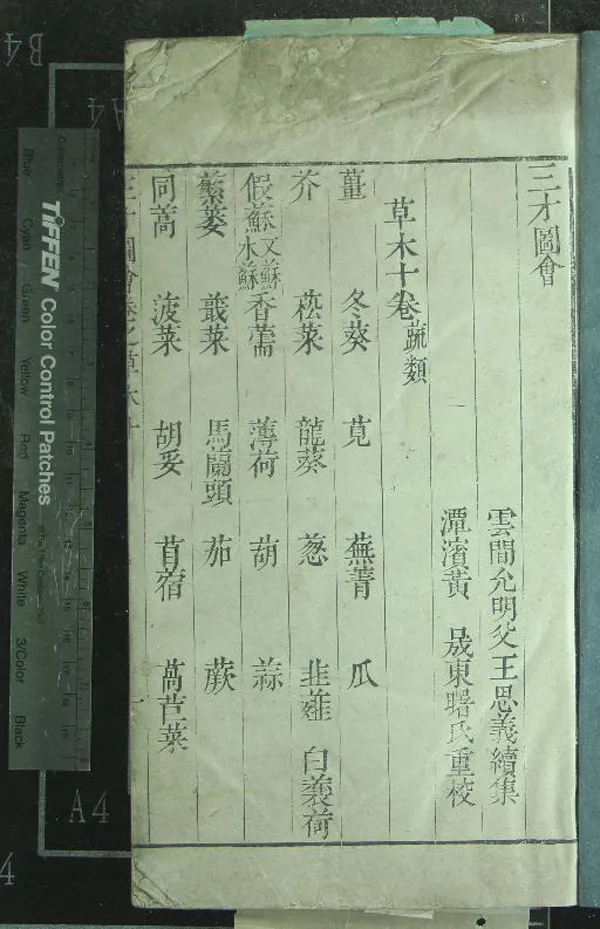 三才圖會
雲間允明父王思義續集
潭濱黃　晟東曙氏重校
草木十卷 蔬類
葍　冬葵　莧　蕪菁　瓜
芥　菘菜　龍葵　葱　韭薤　白蘘荷
假蘇 又蘇 水蘇 香薷　薄荷　葫　蒜
蘩蔞　蕺菜　馬蘭頭　茄　蕨
同蒿　菠菜　胡荽　苜蓿　萵苣菜
三才圖會卷之草木十
B4
A4
A4
TIFFEN Color Control Patches
Blue Cyan Green Yellow Red Magenta White 3/Color Black